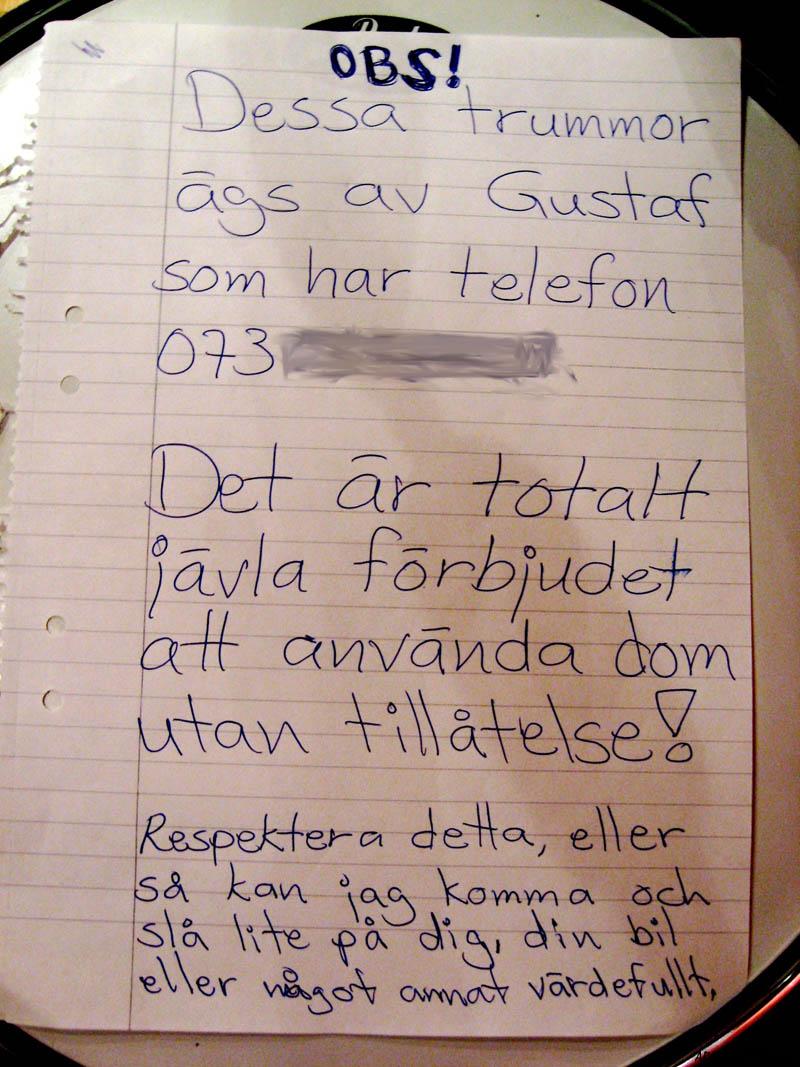 OBS!
Dessa trummor
ägs av Gustaf
som har telefon
073
Det är totalt
jävla förbjudet
att använda dom
utan tillåtelse!
Respektera detta, eller
så kan jag komma och
slå lite på dig, din bil
eller något annat värdefullt.